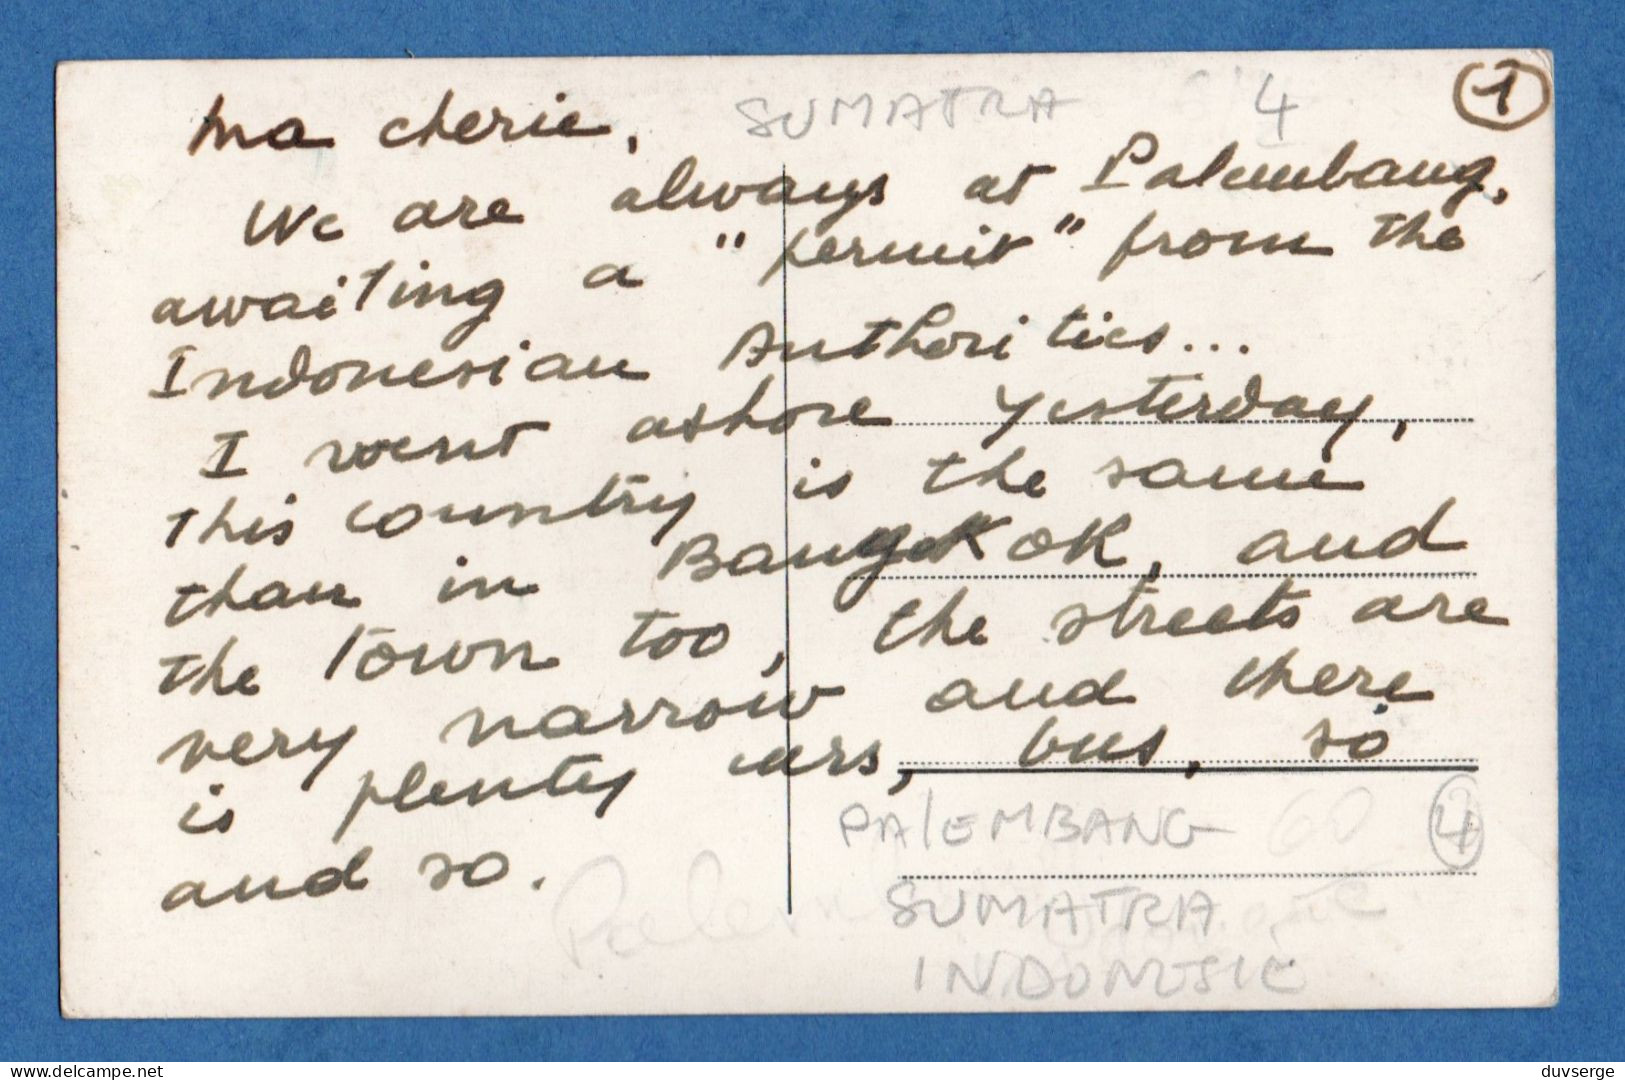 SUMATRA 4 1
Ma cherie,
We are always at Palembang,
awaiting a "permit" from the
Indonesian Authorities...
I went ashore yesterday,
this country is the same
than in Bangkok, and
the town too, the streets are
very narrow and there
is plenty cars, bus, so
and so.
PALEMBANG 60 4
SUMATRA
INDONESIE
duvserge